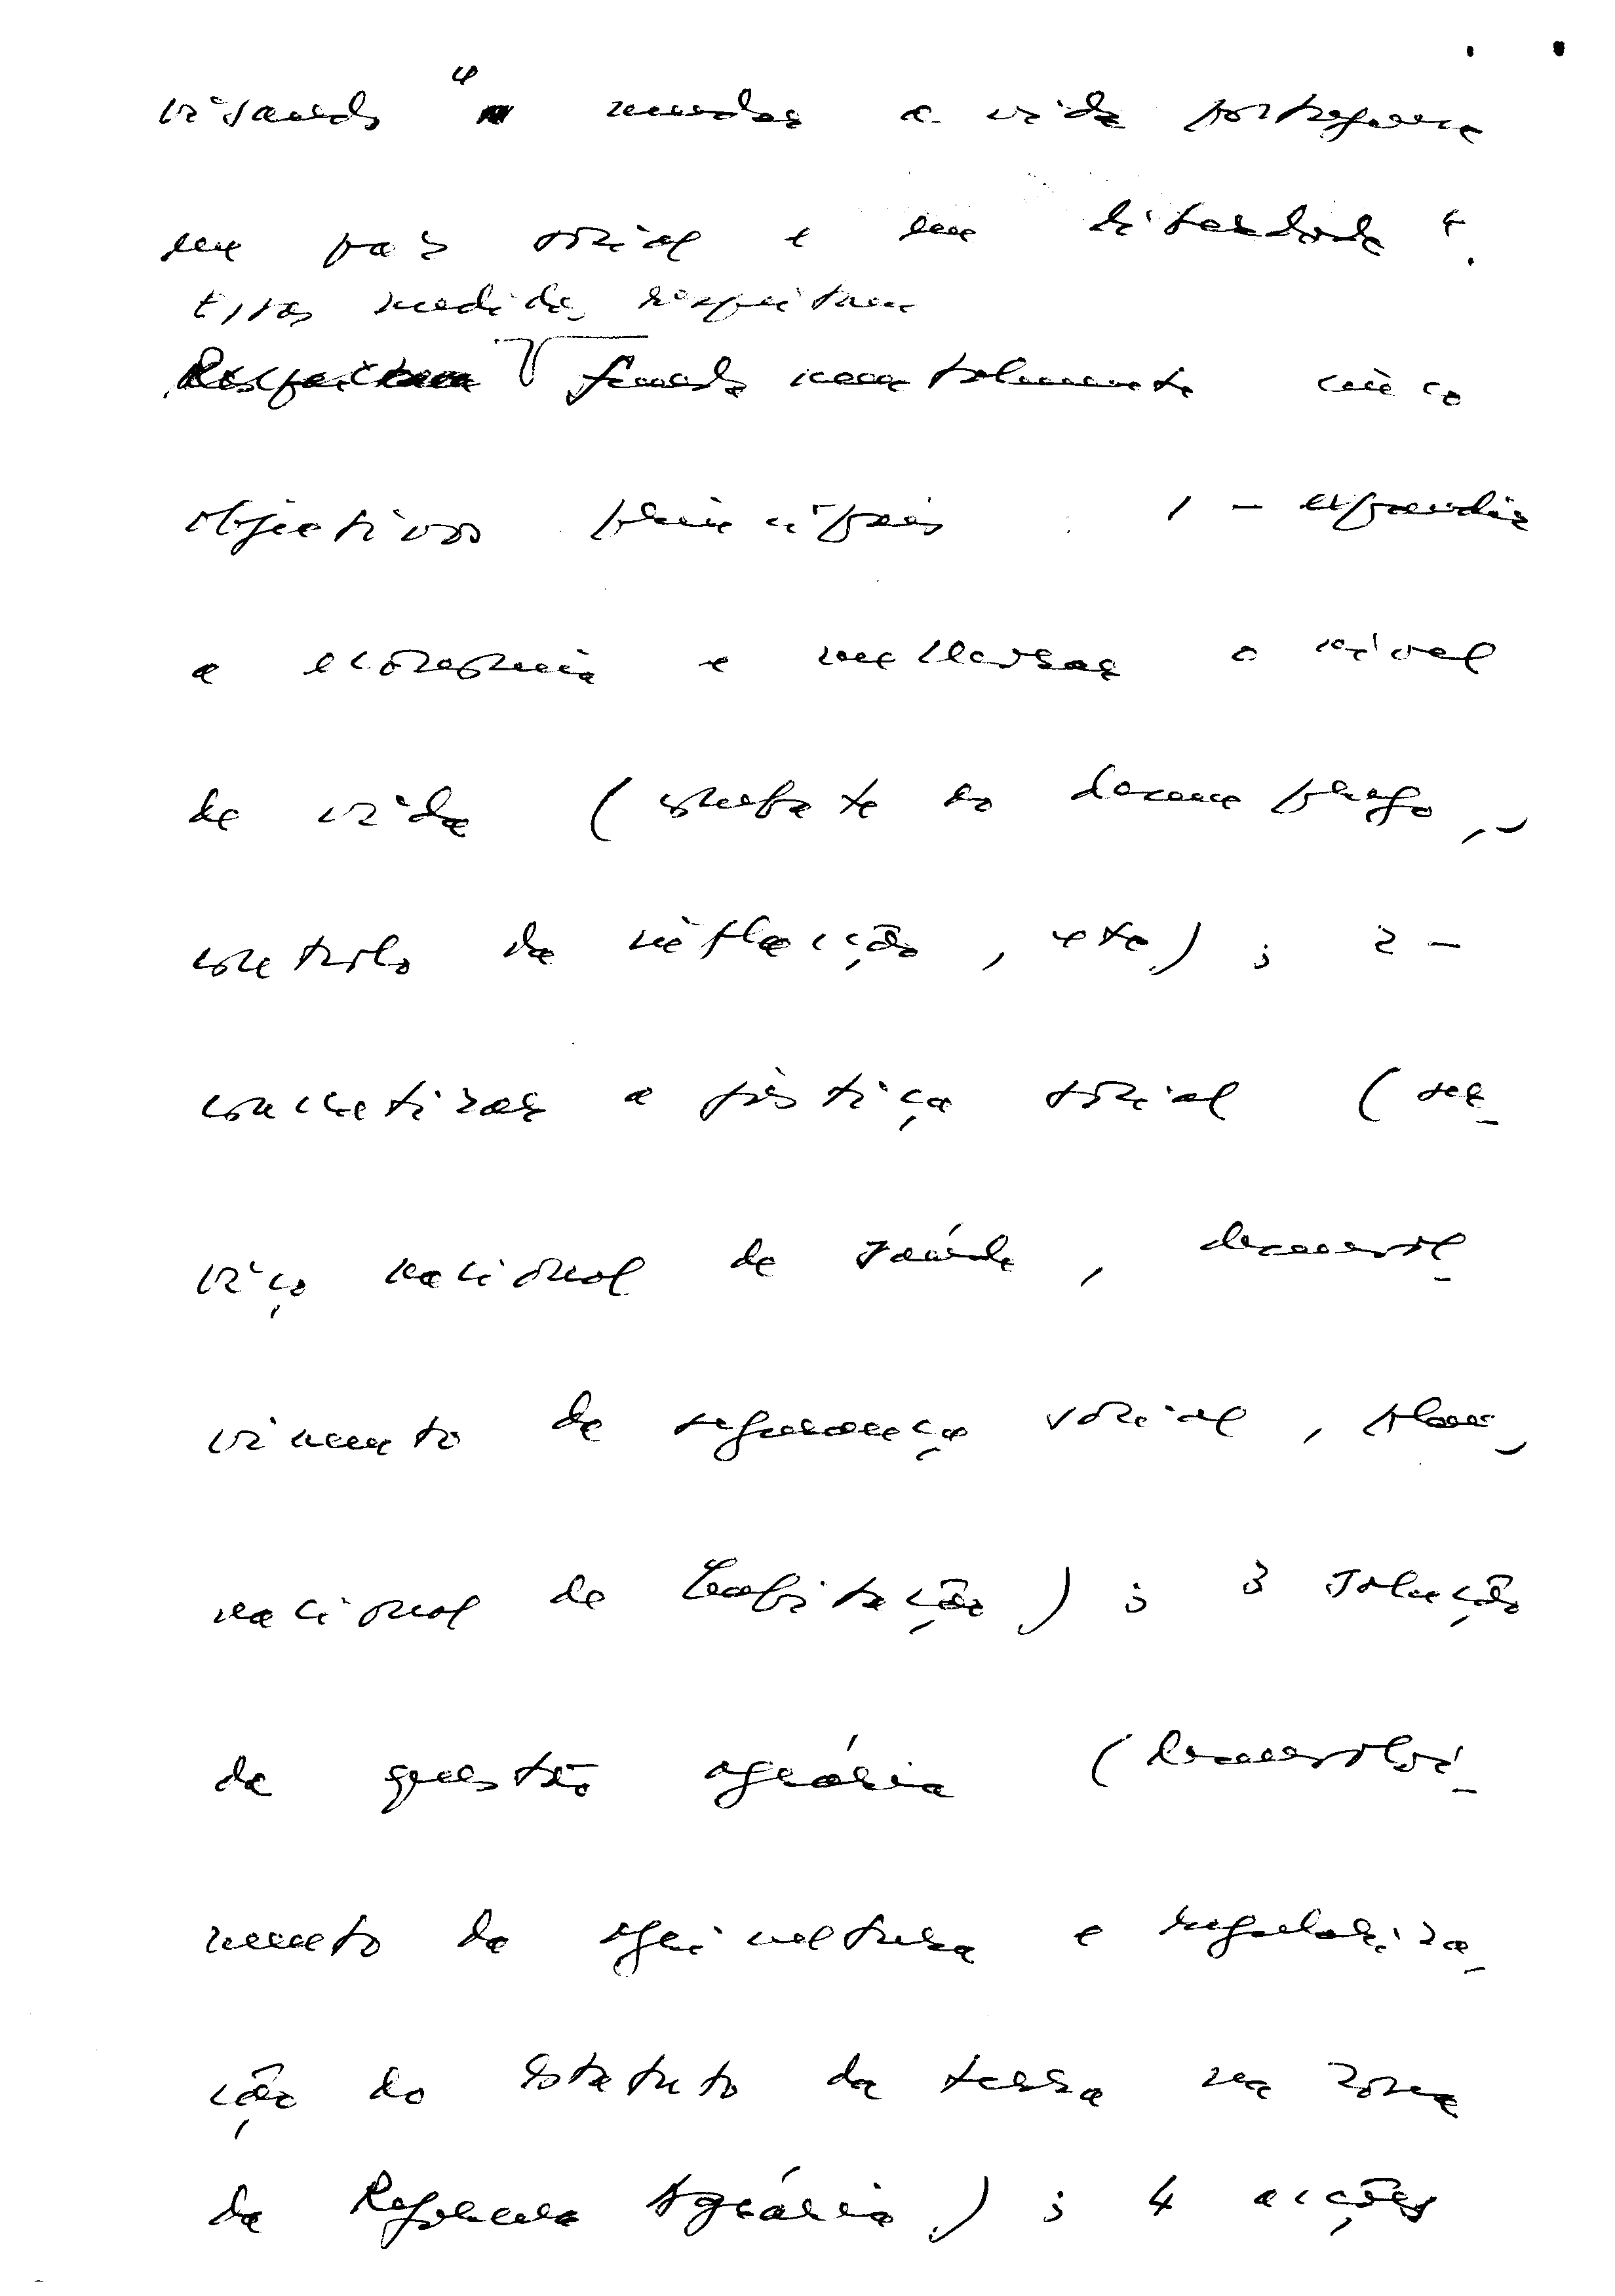 visando " mudar a vida portuguesa
em paz social e em liberdade".
Essas medidas respeitam
Respeitam fundamentalmente cinco
objectivos principais : 1 - expandir
a economia e melhorar o nível
de vida (combate ao desemprego,
controlo da inflacção, etc) ; 2 -
concretizar a justiça social (ser-
viço nacional de saúde, desenvol-
vimento da segurança social, plano
nacional de habitação) ; 3 solução
da questão agrária (desenvolvi-
mento da agricultura e regulariza-
ção do Estatuto da terra na zona
da Reforma Agrária) ; 4 acções